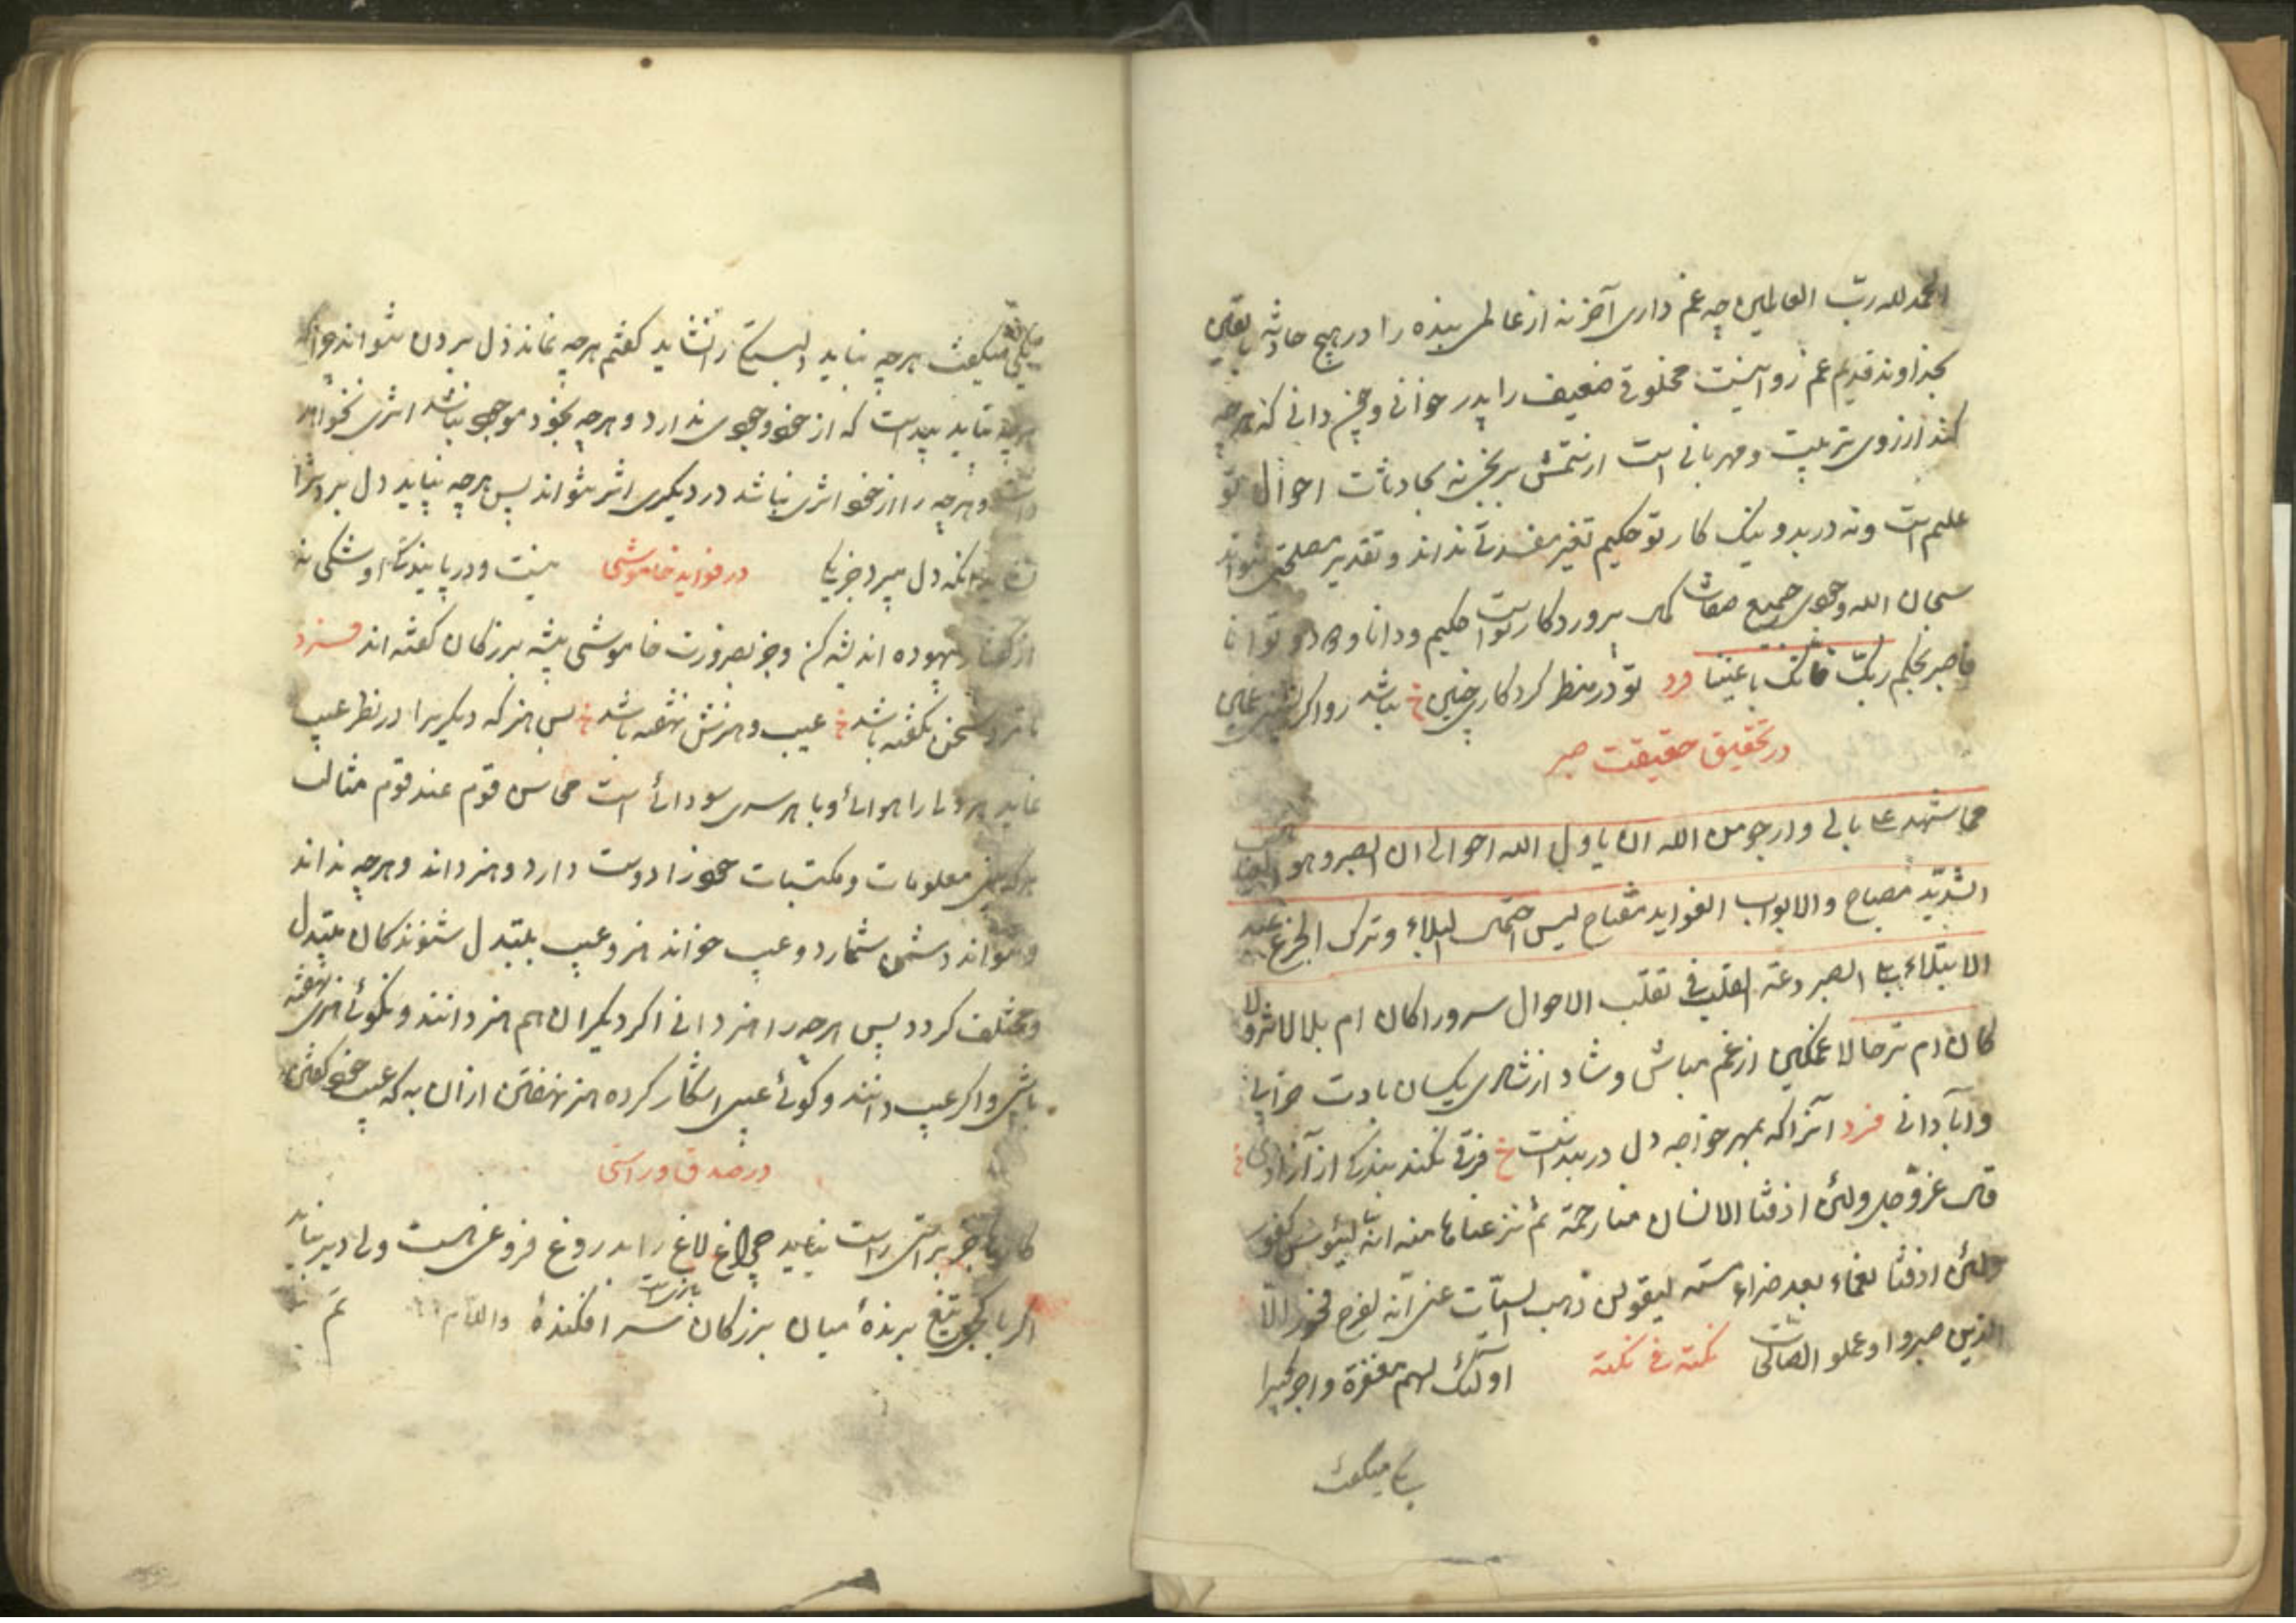 الحمد لله ربّ العالمین چه غم داری آخر نه از عالمی بنده را در هیچ حادثه یا بقین
بخداوند قدیم غم روا نیست مخلوقی ضعیف را پدر خوانی و چنین دانی که هرچه
کند از روی تربیت و مهربانی است ازنعمتش برنجی نه بحادثات احوال تو
علیم است و نه در بد و نیک کار تو حکیم تغیر مفسدتی نداند و تقدیر مصلحتی نتواند
سبحان الله وجوی جمیع صفات کمال پروردکار تواست حکیم ودانا و توانا
فاصبر لحکم ربک فانک باعیننا فرد تو در منظر کردکار چنین خ نباشد روا کر نشینی غمین
در تحقیق حقیقت صبر
مما ستهد علی بالی وارجو من الله ان یاول الله احوالی ان الصبر وهو
الشدید مصباح والابواب الفواید مفتاح لیس احتمال البلاء وترک الجزع عند
الابتلاء بل الصبر دعة القلب فی تقلب الاحوال سرورا کان ام بلالا ثروة
کان ام ترحالا غمکین از غم مباش وشاد از شادی یکسان بادت خرابی
وآبادانی فرد آنرا که بمهر خواجه دل در بند است خ فرقی نکند بندکی از آزادی خ
قال عزّ وجل ولئن اذقنا الانسان منا رحمة ثم نزعناها منه انه لیئوس کفور
ولئن اذقنا نعماء بعد ضراء مسته لیقولن ذهب السیّآت عنی انّه لفرح فخور الّا
الذین صبروا وعملو الصالحات نکته فی نکتة اولئک لهم مغفرة واجر کبیرا
یکی میکفت
یکی میکفت هرچه نیاید دلبستکی را نشاید کفتم هرچه نماند دل بردن نتواند چراکه
هرچه نپاید پیداست که از خود وجودی ندارد و هرچه بخود موجود نباشد اثری نخواهد
داشت و هرچه را از خود اثری نباشد در دیکری اثر نتواند پس هرچه نپاید دل نبرد زیرا
آنکه دل میبرد جز یکی در فواید خاموشی نیست و در پایندکی او شکی نه
از کفتار بیهوده اندیشه کن وجز بضرورت خاموشی پیشه بزرکان کفته اند فرد
تا مرد سخن نکفته باشد خ عیب و هنرش نهفته باشد خ بس هنر که دیکریرا در نظر عیب
نماید هر دلی را هوائی و با هر سری سودائی است محاسن قوم عند قوم مثالب
هر کسی معلومات ومکتسبات خود را دوست دارد و هنر داند و هرچه نداند
و نتواند دشمن شمارد و عیب خواند هنر و عیب بتبدل شنوندکان متبدل
و مختلف کردد پس هرچه را هنر دانی اکر دیکران هم هنر دانند و نکوئی هنری نهفته
باشی واکر عیب دانند و کوئی عیبی اشکار کرده هنر نهفتن ازان به که عیب خود کفتن
در صدق و راستی
کارها جز براستی راست نیاید چراغ لاغ را بدروغ فروغی هست ولی دیر نپاید
اکر با کجی تیغ برندهٔ میان بزرکان سر افکندهٔ والسلام تم